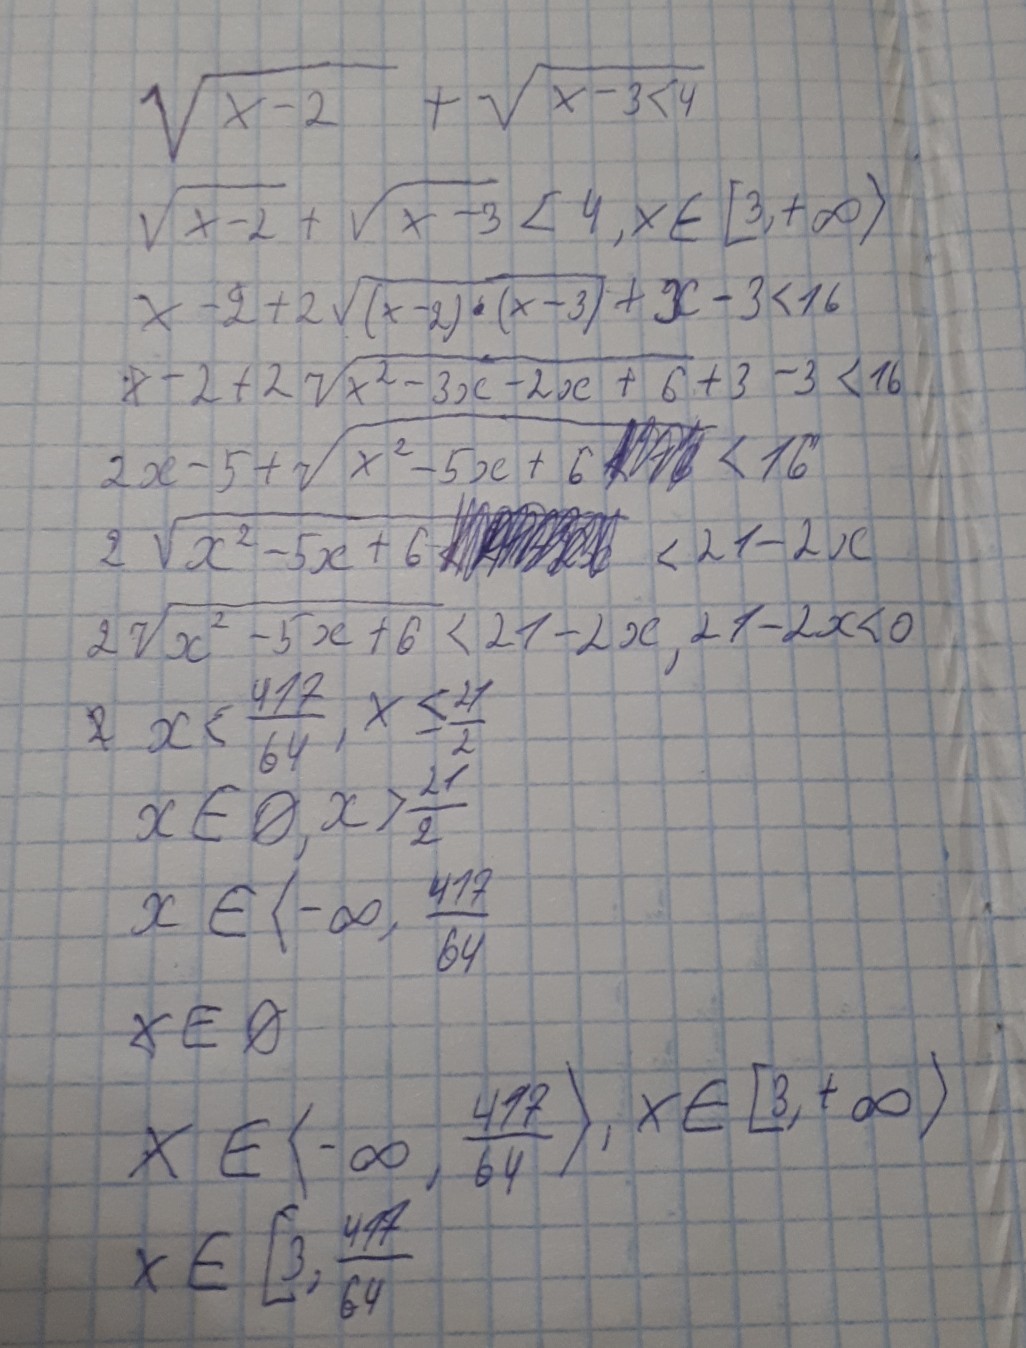 √(x-2) + √(x-3<4)
√(x-2) + √(x-3) < 4, x∈[3,+∞)
x-2+2√((x-2)·(x-3))+x-3<16
x-2+2√(x²-3x-2x+6)+3-3<16
2x-5+√(x²-5x+6) <16
2√(x²-5x+6) <21-2x
2√(x²-5x+6)<21-2x, 21-2x<0
2 x<417/64, x≤21/2
x∈∅, x>21/2
x∈⟨-∞, 417/64
x∈∅
x∈⟨-∞, 417/64⟩, x∈[3,+∞⟩
x∈[3, 417/64